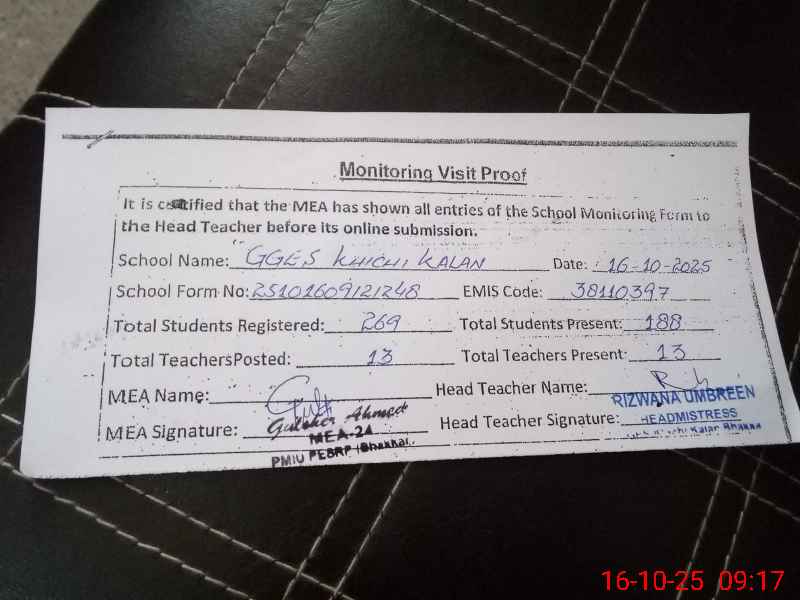 Monitoring Visit Proof
It is certified that the MEA has shown all entries of the School Monitoring Form to
the Head Teacher before its online submission.
School Name: GGES KHICHI KALAN Date: 16-10-2025
School Form No: 25101609121248 EMIS Code: 38110397
Total Students Registered: 269 Total Students Present: 188
Total TeachersPosted: 13 Total Teachers Present: 13
MEA Name: Head Teacher Name:
RIZWANA UMBREEN
MEA Signature: Gulsher Ahmed Head Teacher Signature: HEADMISTRESS
MEA-24 Kalan Bhakkar
PMIU PESRP (Bhakkar)
16-10-25 09:17